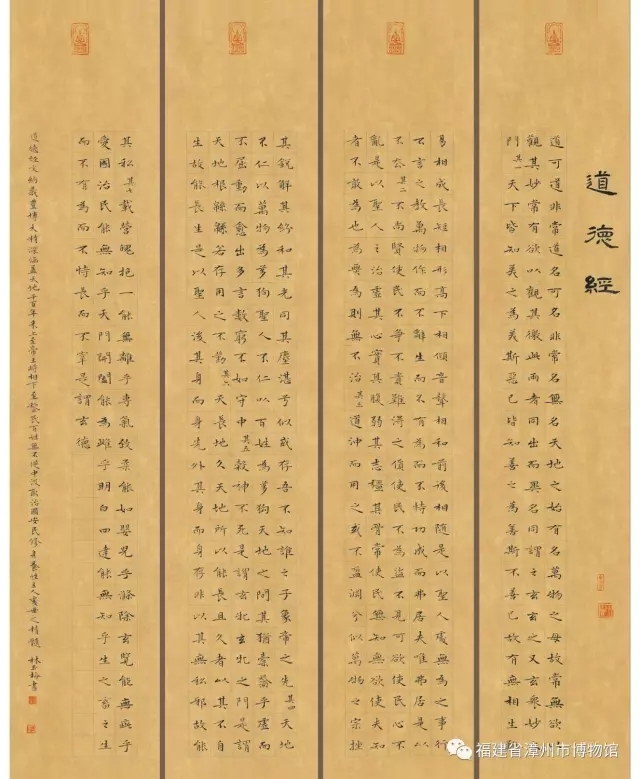 道德經
道可道非常道名可名非常名無名天地之始有名萬物之母故常無欲以
觀其妙常有欲以觀其徼此兩者同出而異名同謂之玄玄之又玄衆妙之
門其一天下皆知美之為美斯惡已皆知善之為善斯不善已故有無相生難
易相成長短相形高下相傾音聲相和前後相隨是以聖人處無為之事行
不言之教萬物作而不辭生而不有為而不恃功成而弗居夫唯弗居是以
不去其二不尚賢使民不爭不貴難得之貨使民不為盜不見可欲使民心不
亂是以聖人之治虛其心實其腹弱其志彊其骨常使民無知無欲使夫知
者不敢為也為無為則無不治其三道沖而用之或不盈淵兮似萬物之宗挫
其銳解其紛和其光同其塵湛兮似或存吾不知誰之子象帝之先其四天地
不仁以萬物為芻狗聖人不仁以百姓為芻狗天地之間其猶橐籥乎虛而
不屈動而愈出多言數窮不如守中其五穀神不死是謂玄牝玄牝之門是謂
天地根緜緜若存用之不勤其六天長地久天地所以能長且久者以其不自
生故能長生是以聖人後其身而身先外其身而身存非以其無私邪故能
其私其七載營魄抱一能無離乎專氣致柔能如嬰兒乎滌除玄覽能無疵乎
愛國治民能無知乎天門開闔能為雌乎明白四達能無知乎生之畜之生
而不有為而不恃長而不宰是謂玄德
道德經文約義豐博大精深涵蓋天地千百年来上至帝王將相下至黎民百姓無不從中汲取治國安民修身養性之精髓 林玉梅書
福建省漳州市博物馆